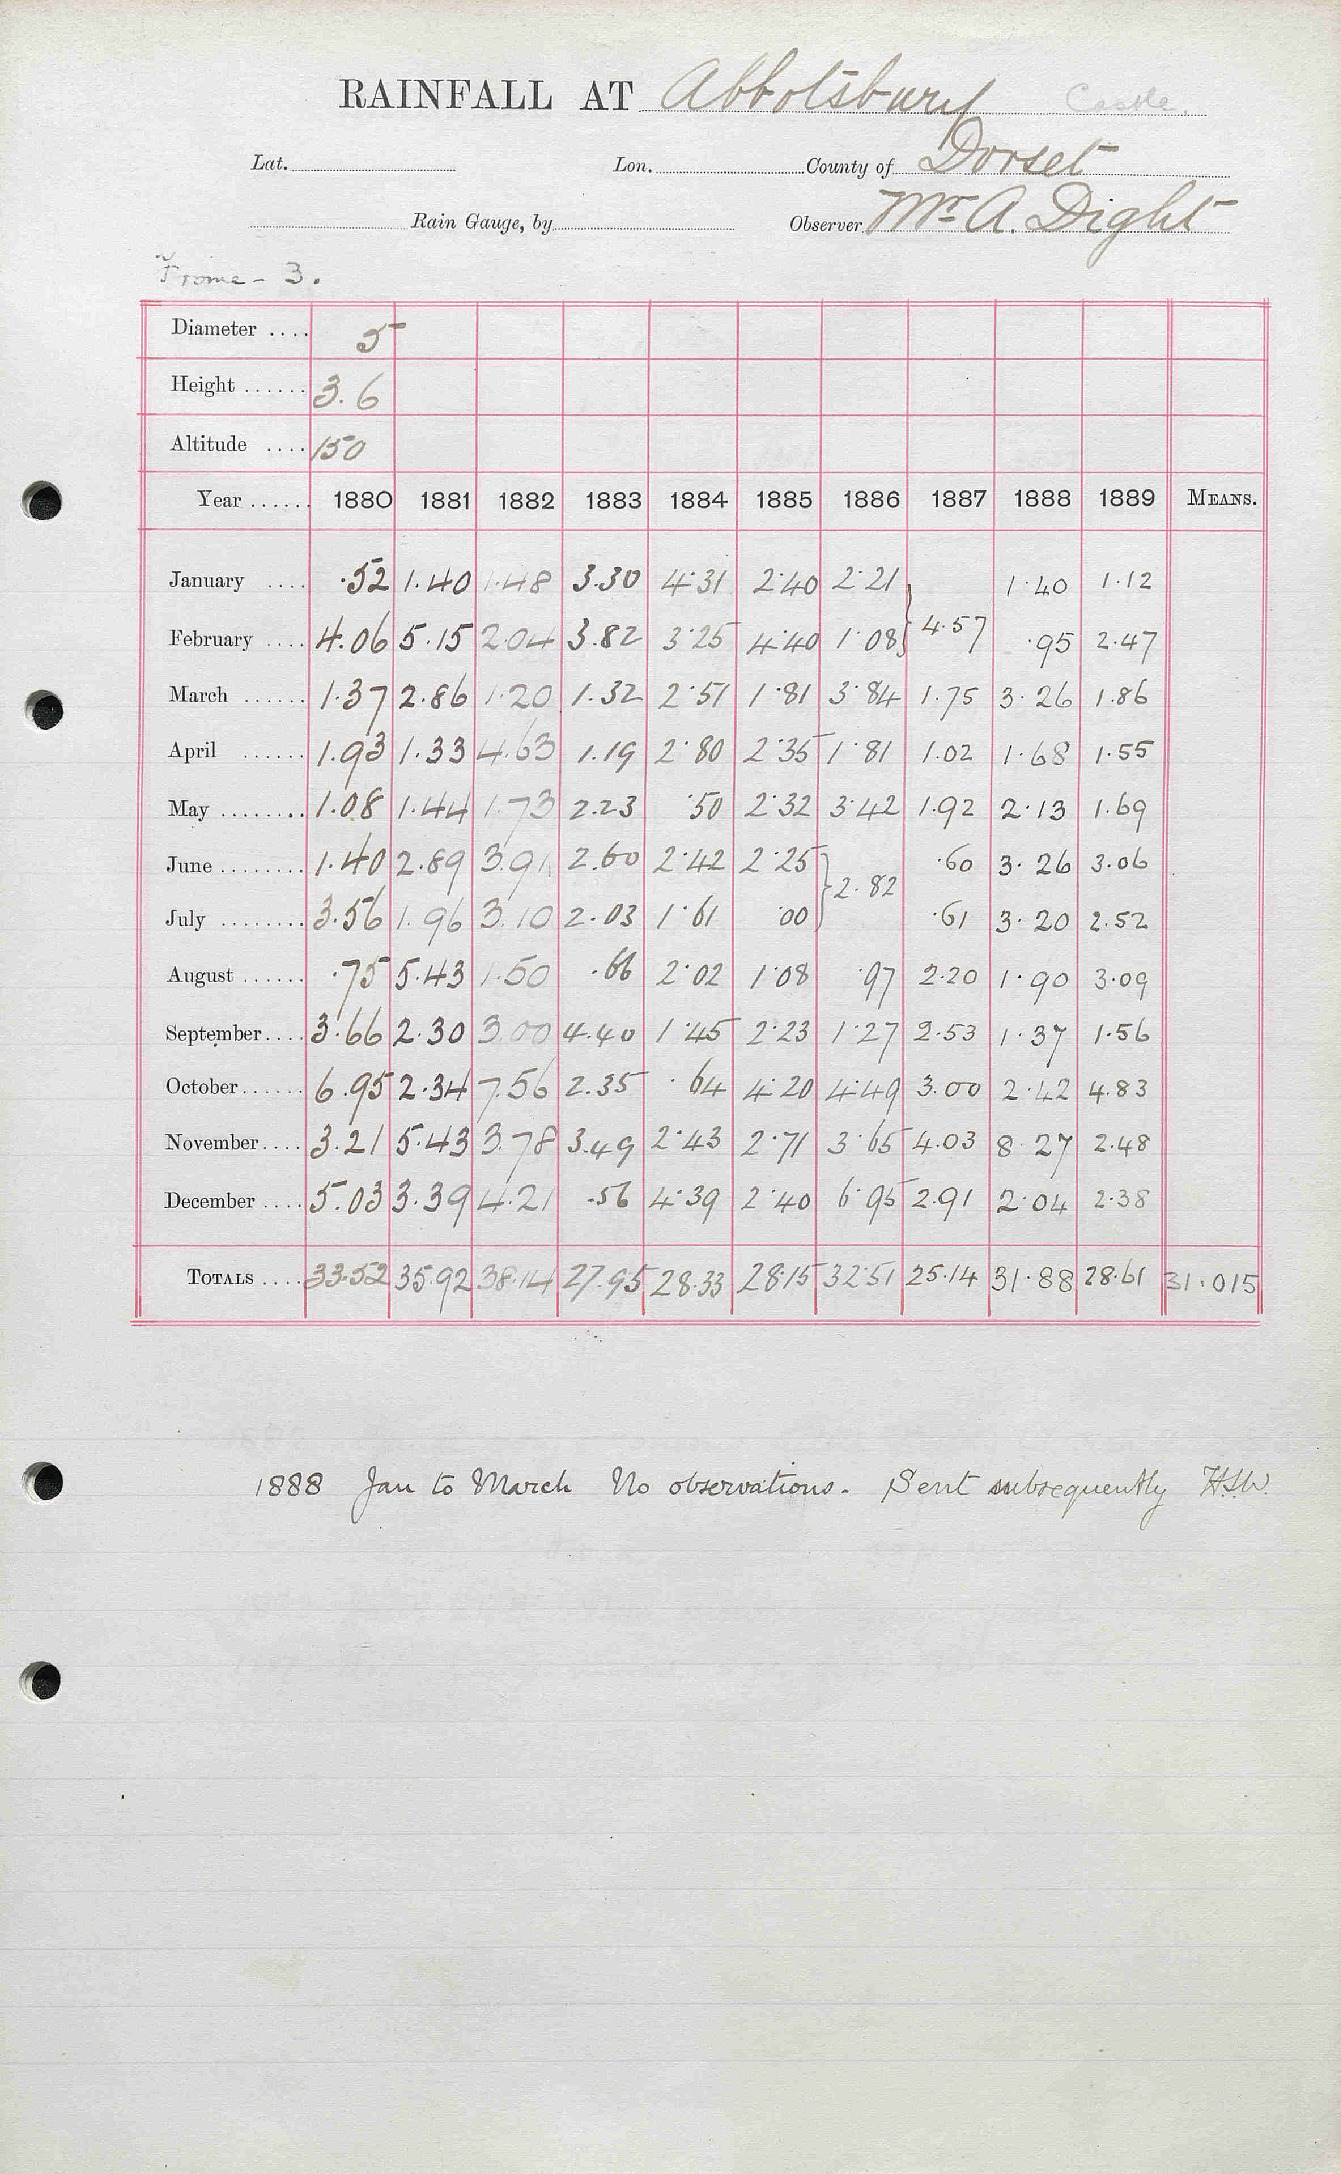 RAINFALL AT Abbotsbury Castle.
Lat. Lon. County of Dorset
Rain Gauge, by Observer Mr. A. Dight
Frome - 3.
Diameter .... 5
Height ...... 3.6
Altitude .... 150
Year ...... 1880 1881 1882 1883 1884 1885 1886 1887 1888 1889 MEANS.
January .... .52 1.40 1.48 3.30 4.31 2.40 2.21 1.40 1.12
February .... 4.06 5.15 2.04 3.82 3.25 4.40 1.08 } 4.57 .95 2.47
March ...... 1.37 2.86 1.20 1.32 2.51 1.81 3.84 1.75 3.26 1.86
April ...... 1.93 1.33 4.63 1.19 2.80 2.35 1.81 1.02 1.68 1.55
May ........ 1.08 1.44 1.73 2.23 .50 2.32 3.42 1.92 2.13 1.69
June ........ 1.40 2.89 3.91 2.60 2.42 2.25 } 2.82 .60 3.26 3.06
July ........ 3.56 1.96 3.10 2.03 1.61 .00 .61 3.20 2.52
August ...... .75 5.43 1.50 .66 2.02 1.08 .97 2.20 1.90 3.09
September .... 3.66 2.30 3.00 4.40 1.45 2.23 1.27 2.53 1.37 1.56
October ...... 6.95 2.34 7.56 2.35 .64 4.20 4.49 3.00 2.42 4.83
November .... 3.21 5.43 3.78 3.49 2.43 2.71 3.65 4.03 8.27 2.48
December .... 5.03 3.39 4.21 .56 4.39 2.40 6.95 2.91 2.04 2.38
TOTALS .... 33.52 35.92 38.14 27.95 28.33 28.15 32.51 25.14 31.88 28.61 31.015
1888 Jan to March No observations. Sent subsequently H.S.W.